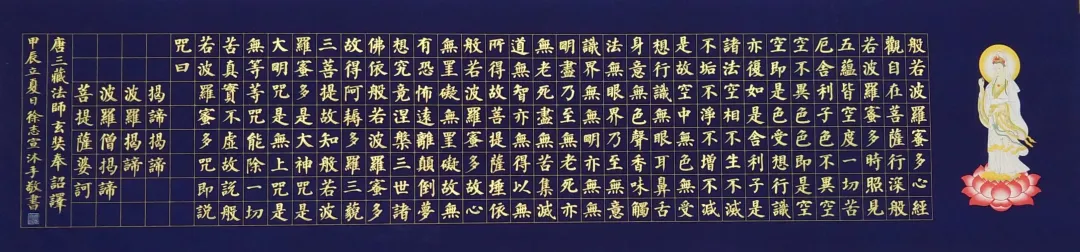 般若波羅蜜多心經
觀自在菩薩行深般
若波羅蜜多時照見
五蘊皆空度一切苦
厄舍利子色不異空
空不異色色即是空
空即是色受想行識
亦復如是舍利子是
諸法空相不生不滅
不垢不淨不增不减
是故空中無色無受
想行識無眼耳鼻舌
身意無色聲香味觸
法無眼界乃至無意
識界無無明亦無無
明盡乃至無老死亦
無老死盡無苦集滅
道無智亦無得以無
所得故菩提薩埵依
般若波羅蜜多故心
無罣礙無罣礙故無
有恐怖遠離顛倒夢
想究竟涅槃三世諸
佛依般若波羅蜜多
故得阿耨多羅三藐
三菩提故知般若波
羅蜜多是大神咒是
大明咒是無上咒是
無等等咒能除一切
苦真實不虛故說般
若波羅蜜多咒即說
咒曰
揭諦揭諦
波羅揭諦
波羅僧揭諦
菩提薩婆訶
唐三藏法師玄奘奉詔譯
甲辰立夏日徐志宣沐手敬書